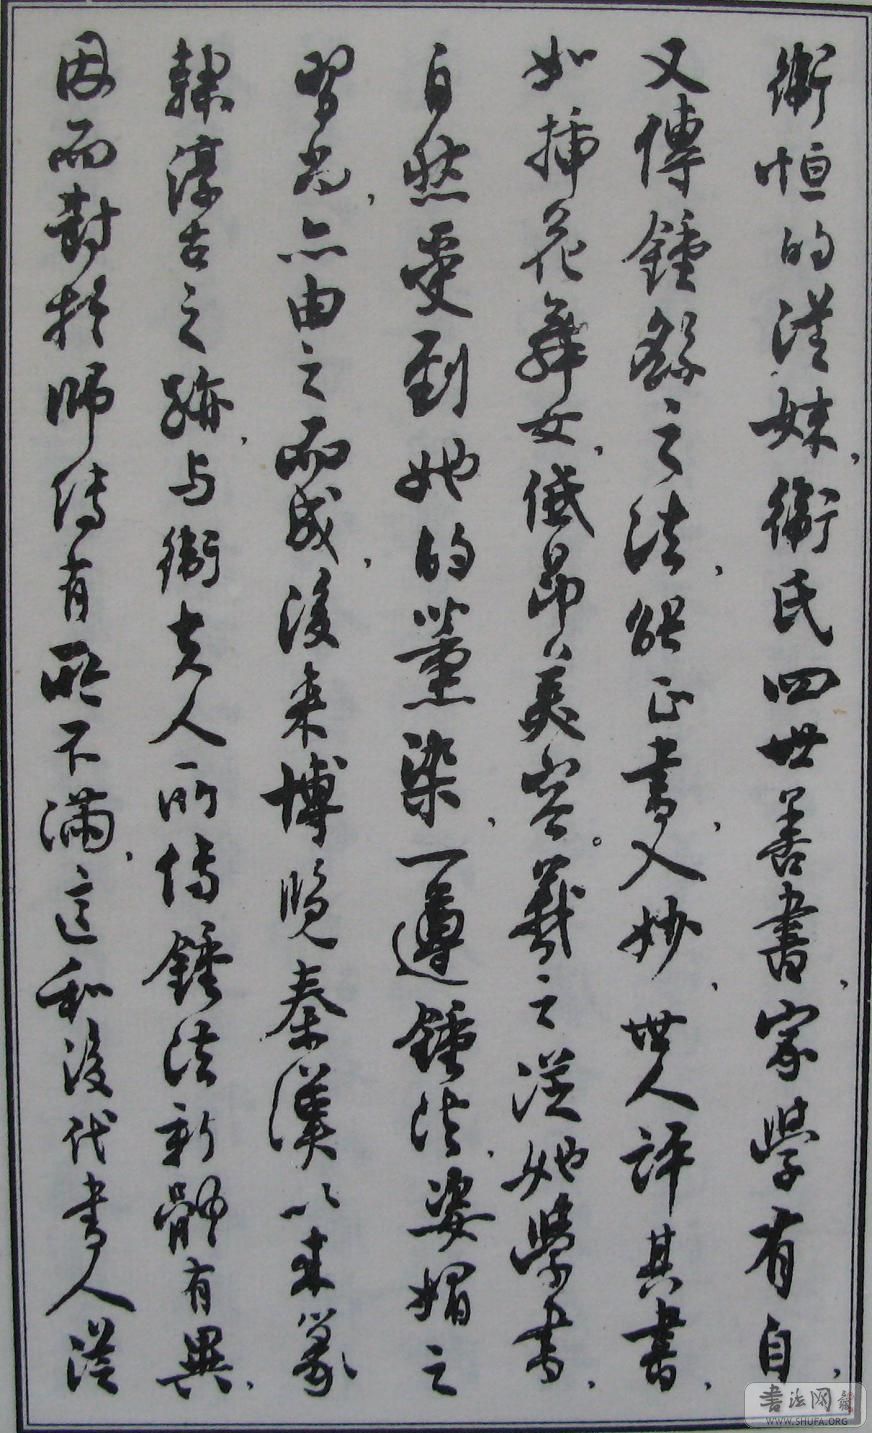 衛恒的從妹，衛氏四世善書，家學有自，
又傳鍾繇之法，能正書，入妙，世人評其書，
如插花舞女，低昂美容。羲之從她學書，
自然受到她的薰染，一遵鍾法，姿媚之
習尚，亦由之而成，後来博覽秦漢以来篆
隸淳古之跡，与衛夫人所传鍾法新體有異，
因而對於師传有所不滿，這和後代書人從
书法网
WWW.SHUFA.ORG